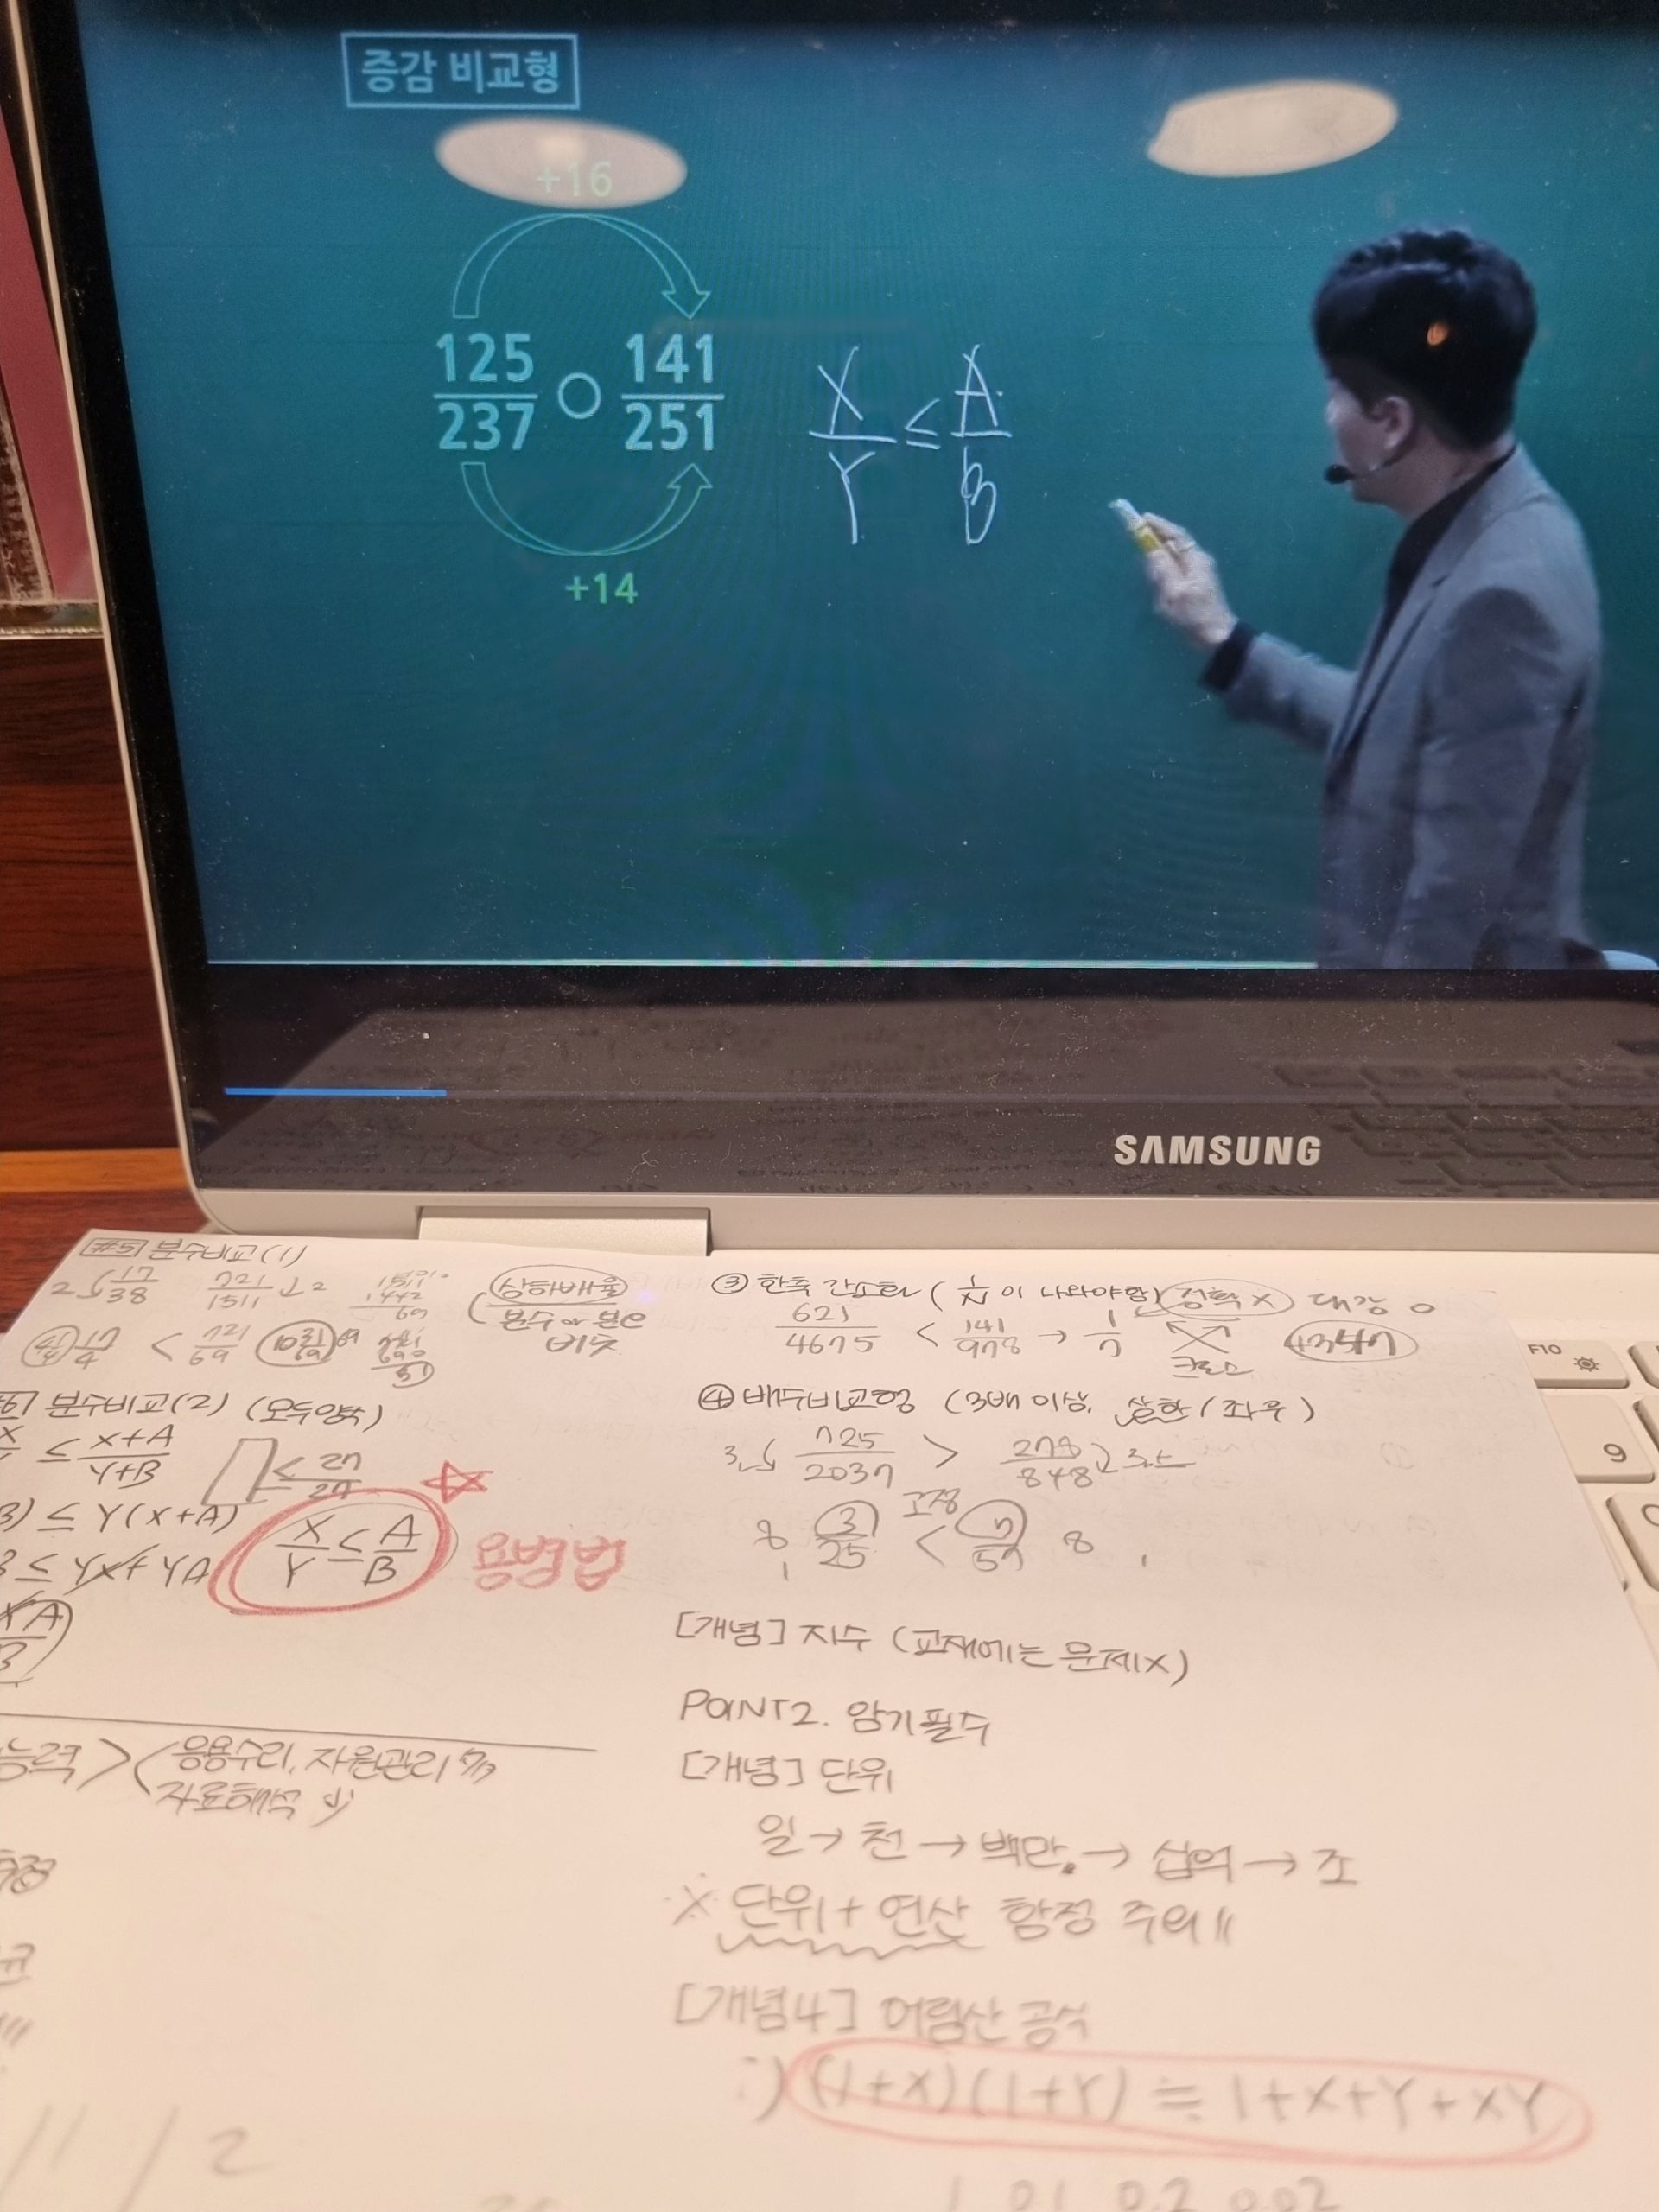 증감 비교형
+16
125/237 ○ 141/251
X/Y ≤ A/B
+14
SAMSUNG
F10
9
#5 분수비교(1)
2 17/38 721/1511 ↓2
1511
1442
69
상하배율
분수 or 분모
비즛
17/4 < 721/69
#6 분수비교(2) (모두양수)
≤ X+A/Y+B
≤ 2n/2n
≤ Y(X+A)
X/Y ≤ A/B
용병법
≤ YX + YA
능력 > 응용수리, 자원관리
자료해석
③ 한쪽 간소화 (1/N이 나와야함) 정확 X 대강 O
621/4675 < 141/978 → 1/7
크로스
④ 배수비교형 (3배 이상, 상한/좌우)
3.↓ 725/2037 > 278/848 3.↓
고정
8, 3/25 < 7/57 8
[개념] 지수 (교재에는 문제X)
POINT2. 암기필수
[개념] 단위
일 → 천 → 백만 → 십억 → 조
※ 단위 + 연산 함정 주의!!
[개념4] 어림산 공식
:) (1+X)(1+Y) ≒ 1+X+Y+XY
1 0.1 0.2 0.02